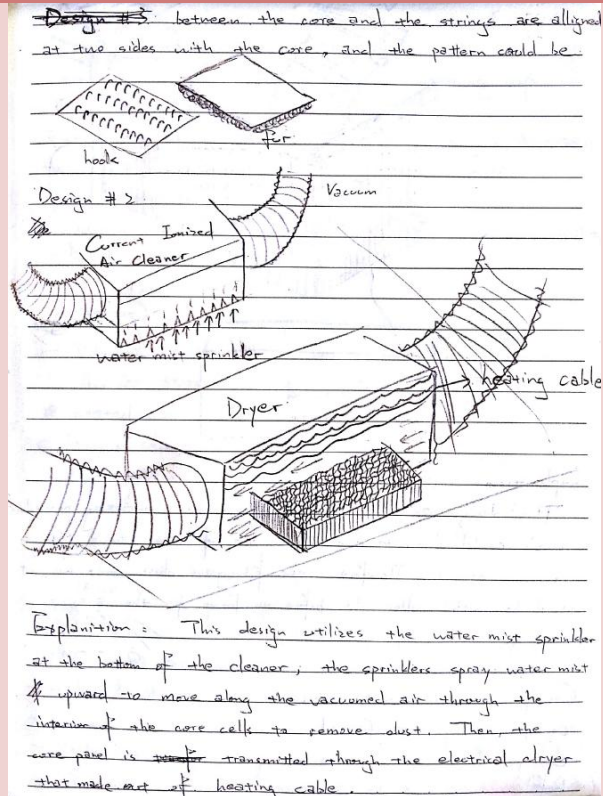 Design #3 between the core and the strings are alligned
at two sides with the core, and the pattern could be
hook
fur
Design #2
Vacuum
Current Ionized
Air Cleaner
water mist sprinkler
heating cable
Dryer
Explanition : This design utilizes the water mist sprinkler
at the bottom of the cleaner, the sprinklers spray water mist
upward to move along the vacuumed air through the
interior of the core cells to remove dust. Then, the
core panel is transmitted through the electrical dryer
that made out of heating cable.